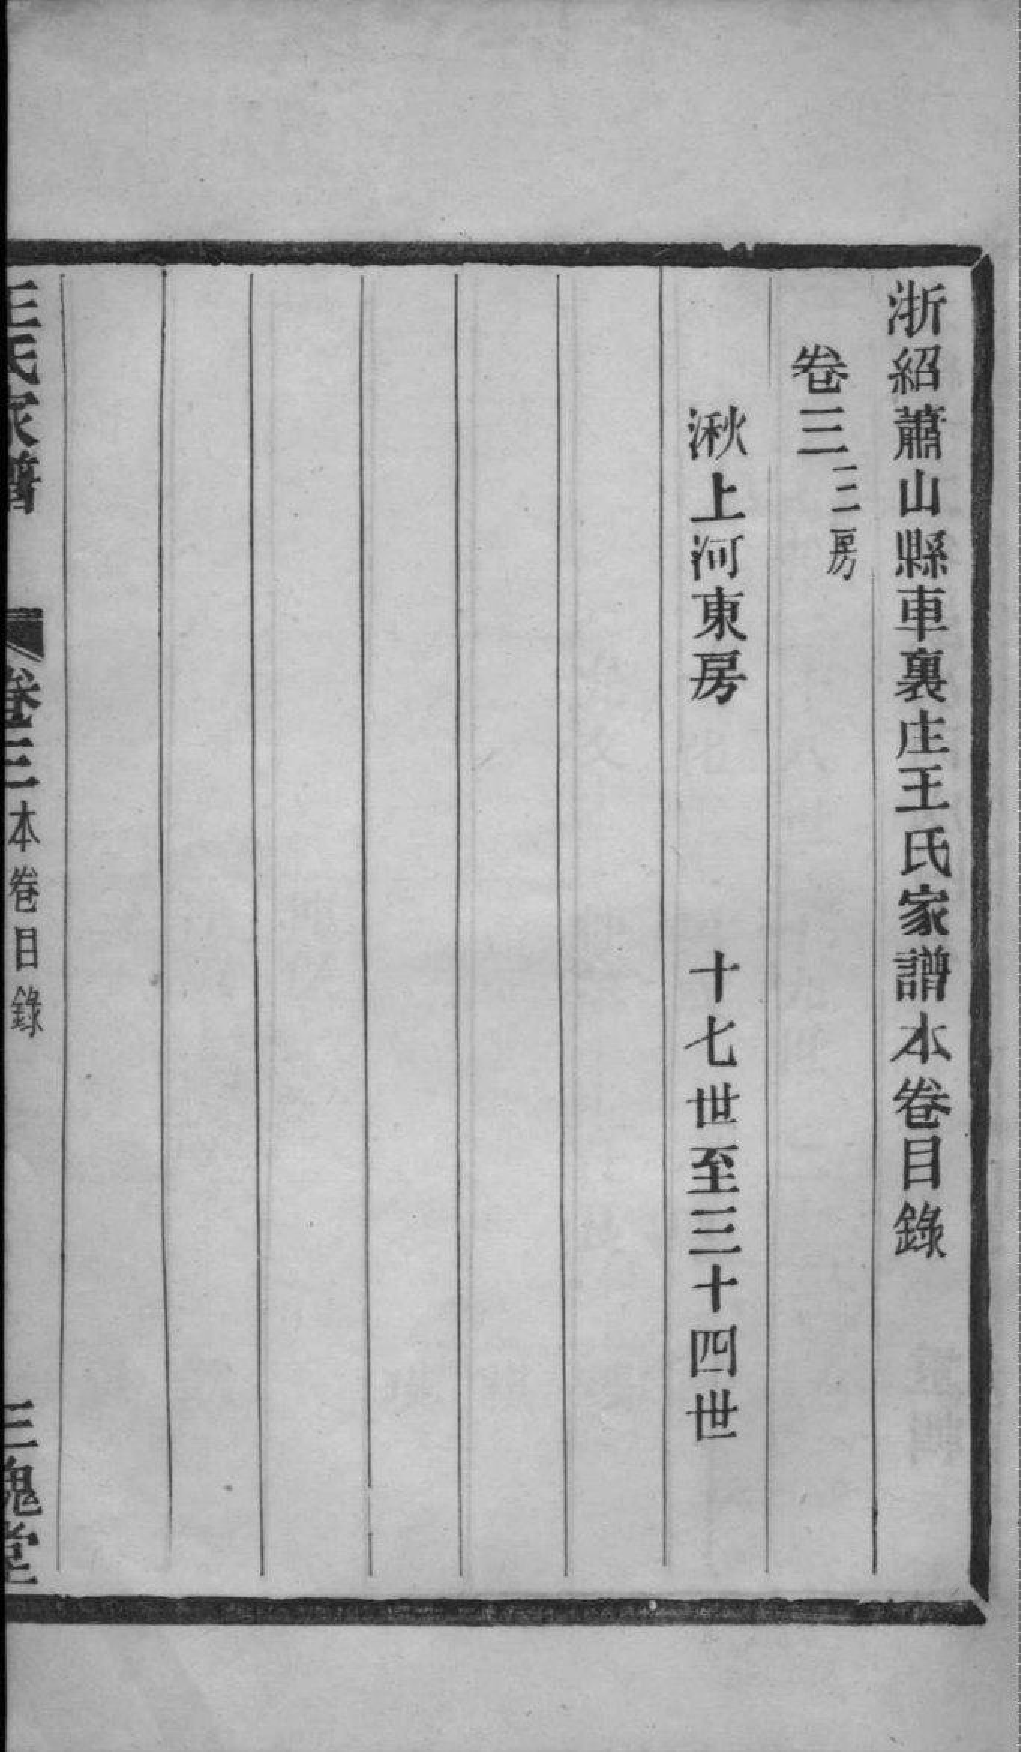 浙紹蕭山縣車裏庄王氏家譜本卷目錄
卷三 二房
湫上河東房 十七世至三十四世
王氏家譜 卷三 本卷目錄 三槐堂